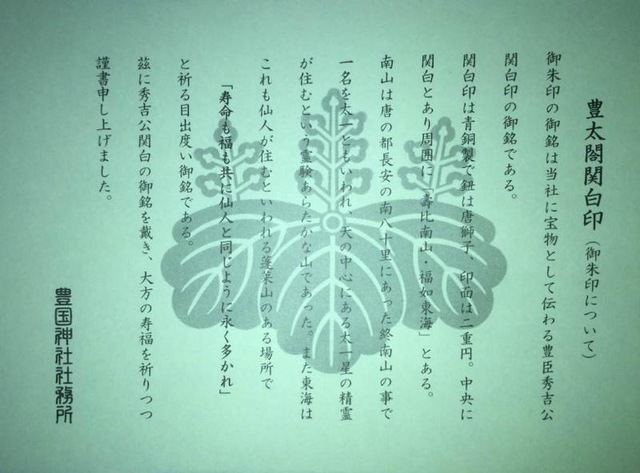 豊太閤関白印（御朱印について）
御朱印の御銘は当社に宝物として伝わる豊臣秀吉公
関白印の御銘である。
関白印は青銅製で鈕は唐獅子、印面は二重円。中央に
関白とあり周囲に「壽比南山・福如東海」とある。
南山は唐の都長安の南八十里にあった終南山の事で
一名を太一ともいわれ、天の中心にある太一星の精霊
が住むという霊験あらたかな山であった。また東海は
これも仙人が住むといわれる蓬莱山のある場所で
「寿命も福も共に仙人と同じように永く多かれ」
と祈る目出度い御銘である。
茲に秀吉公関白の御銘を戴き、大方の寿福を祈りつつ
謹書申し上げました。
豊国神社社務所